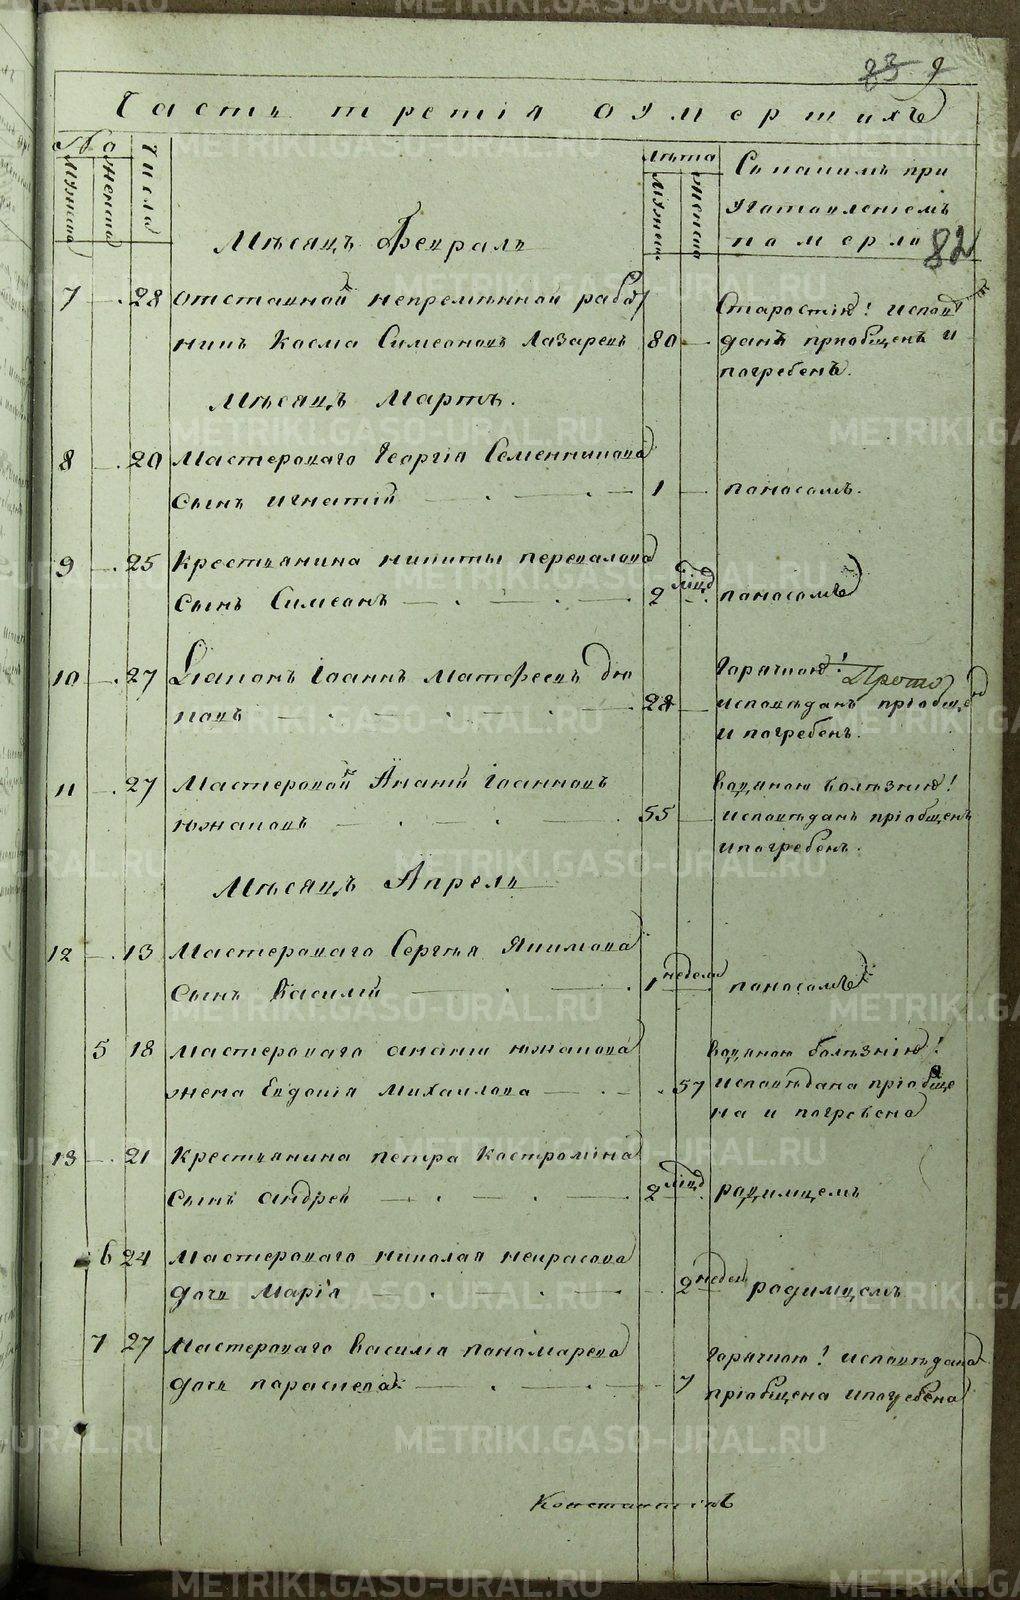 23 9
Часть третія оумершихъ
№
Мужеска
Женска
Числа
Мѣсяцъ Февраль
Лѣта
Мужеск
Женска
Съ какимъ при
уготовленіемъ
померло
82
7 28 Отставной непремѣнной рабо
тникъ Косма Симеоновъ Лазаревъ 80
Старостію! исповѣ
данъ пріобщенъ и
погребенъ.
Мѣсяцъ Мартъ.
8 20 Мастероваго Георгія Семенникова
сынъ Игнатій 1 поносомъ.
9 25 Крестьянина Никиты Перевалова
сынъ Симеонъ 2 мцд поносомъ
10 27 Діаконъ Іоаннъ Матфеевъ Дю
ковъ 28
Горячкою! Прото
исповѣданъ пріобще
и погребенъ.
11 27 Мастеровой Ананій Іоанновъ
Южаковъ 55
водяною болѣзнію!
исповѣданъ пріобщенъ
и погребенъ.
Мѣсяцъ Апрель
12 13 Мастероваго Сергѣя Якимова
сынъ Василій 1 неделя поносомъ
5 18 Мастероваго Ананіи Южакова
жена Евдокія Михаилова 57
водяною болѣзнію!
исповѣдана пріобще
на и погребена
13 21 Крестьянина Петра Костромина
сынъ Андрей 2 мцд родимцемъ
6 24 Мастероваго Николая Некрасова
дочь Марія 2 недел родимцемъ
7 27 Мастероваго Василія Пономарева
дочь Параскева 7
горячкою! исповѣдана
пріобщена и погребена
Константинъ
METRIKI.GASO-URAL.RU